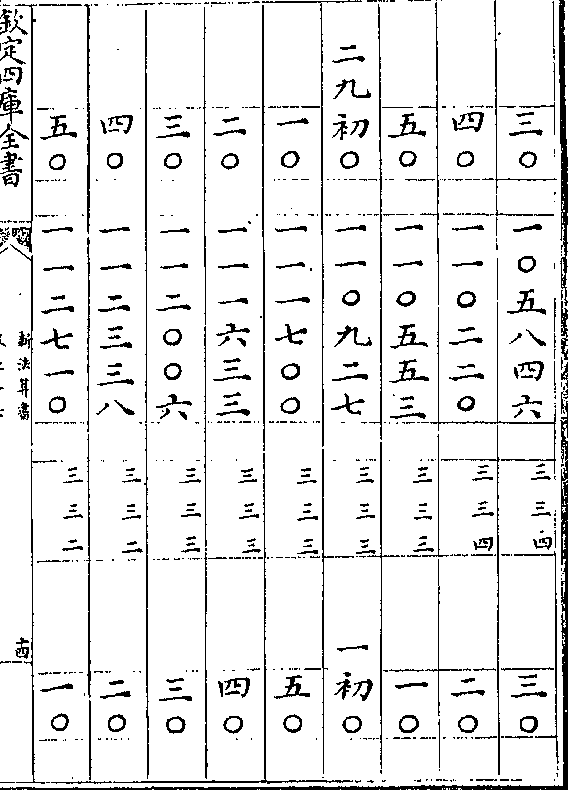 三〇 一〇五八四六 三三四 三〇
四〇 一一〇二二〇 三三四 二〇
五〇 一一〇五五三 三三三 一〇
二九初〇 一一〇九二七 三三三 一初〇
一〇 一一一七〇〇 三三三 五〇
二〇 一一一六三三 三三三 四〇
三〇 一一二〇〇六 三三三 三〇
四〇 一一二三三八 三三二 二〇
五〇 一一二七一〇 三三二 一〇
欽定四庫全書
新法算書